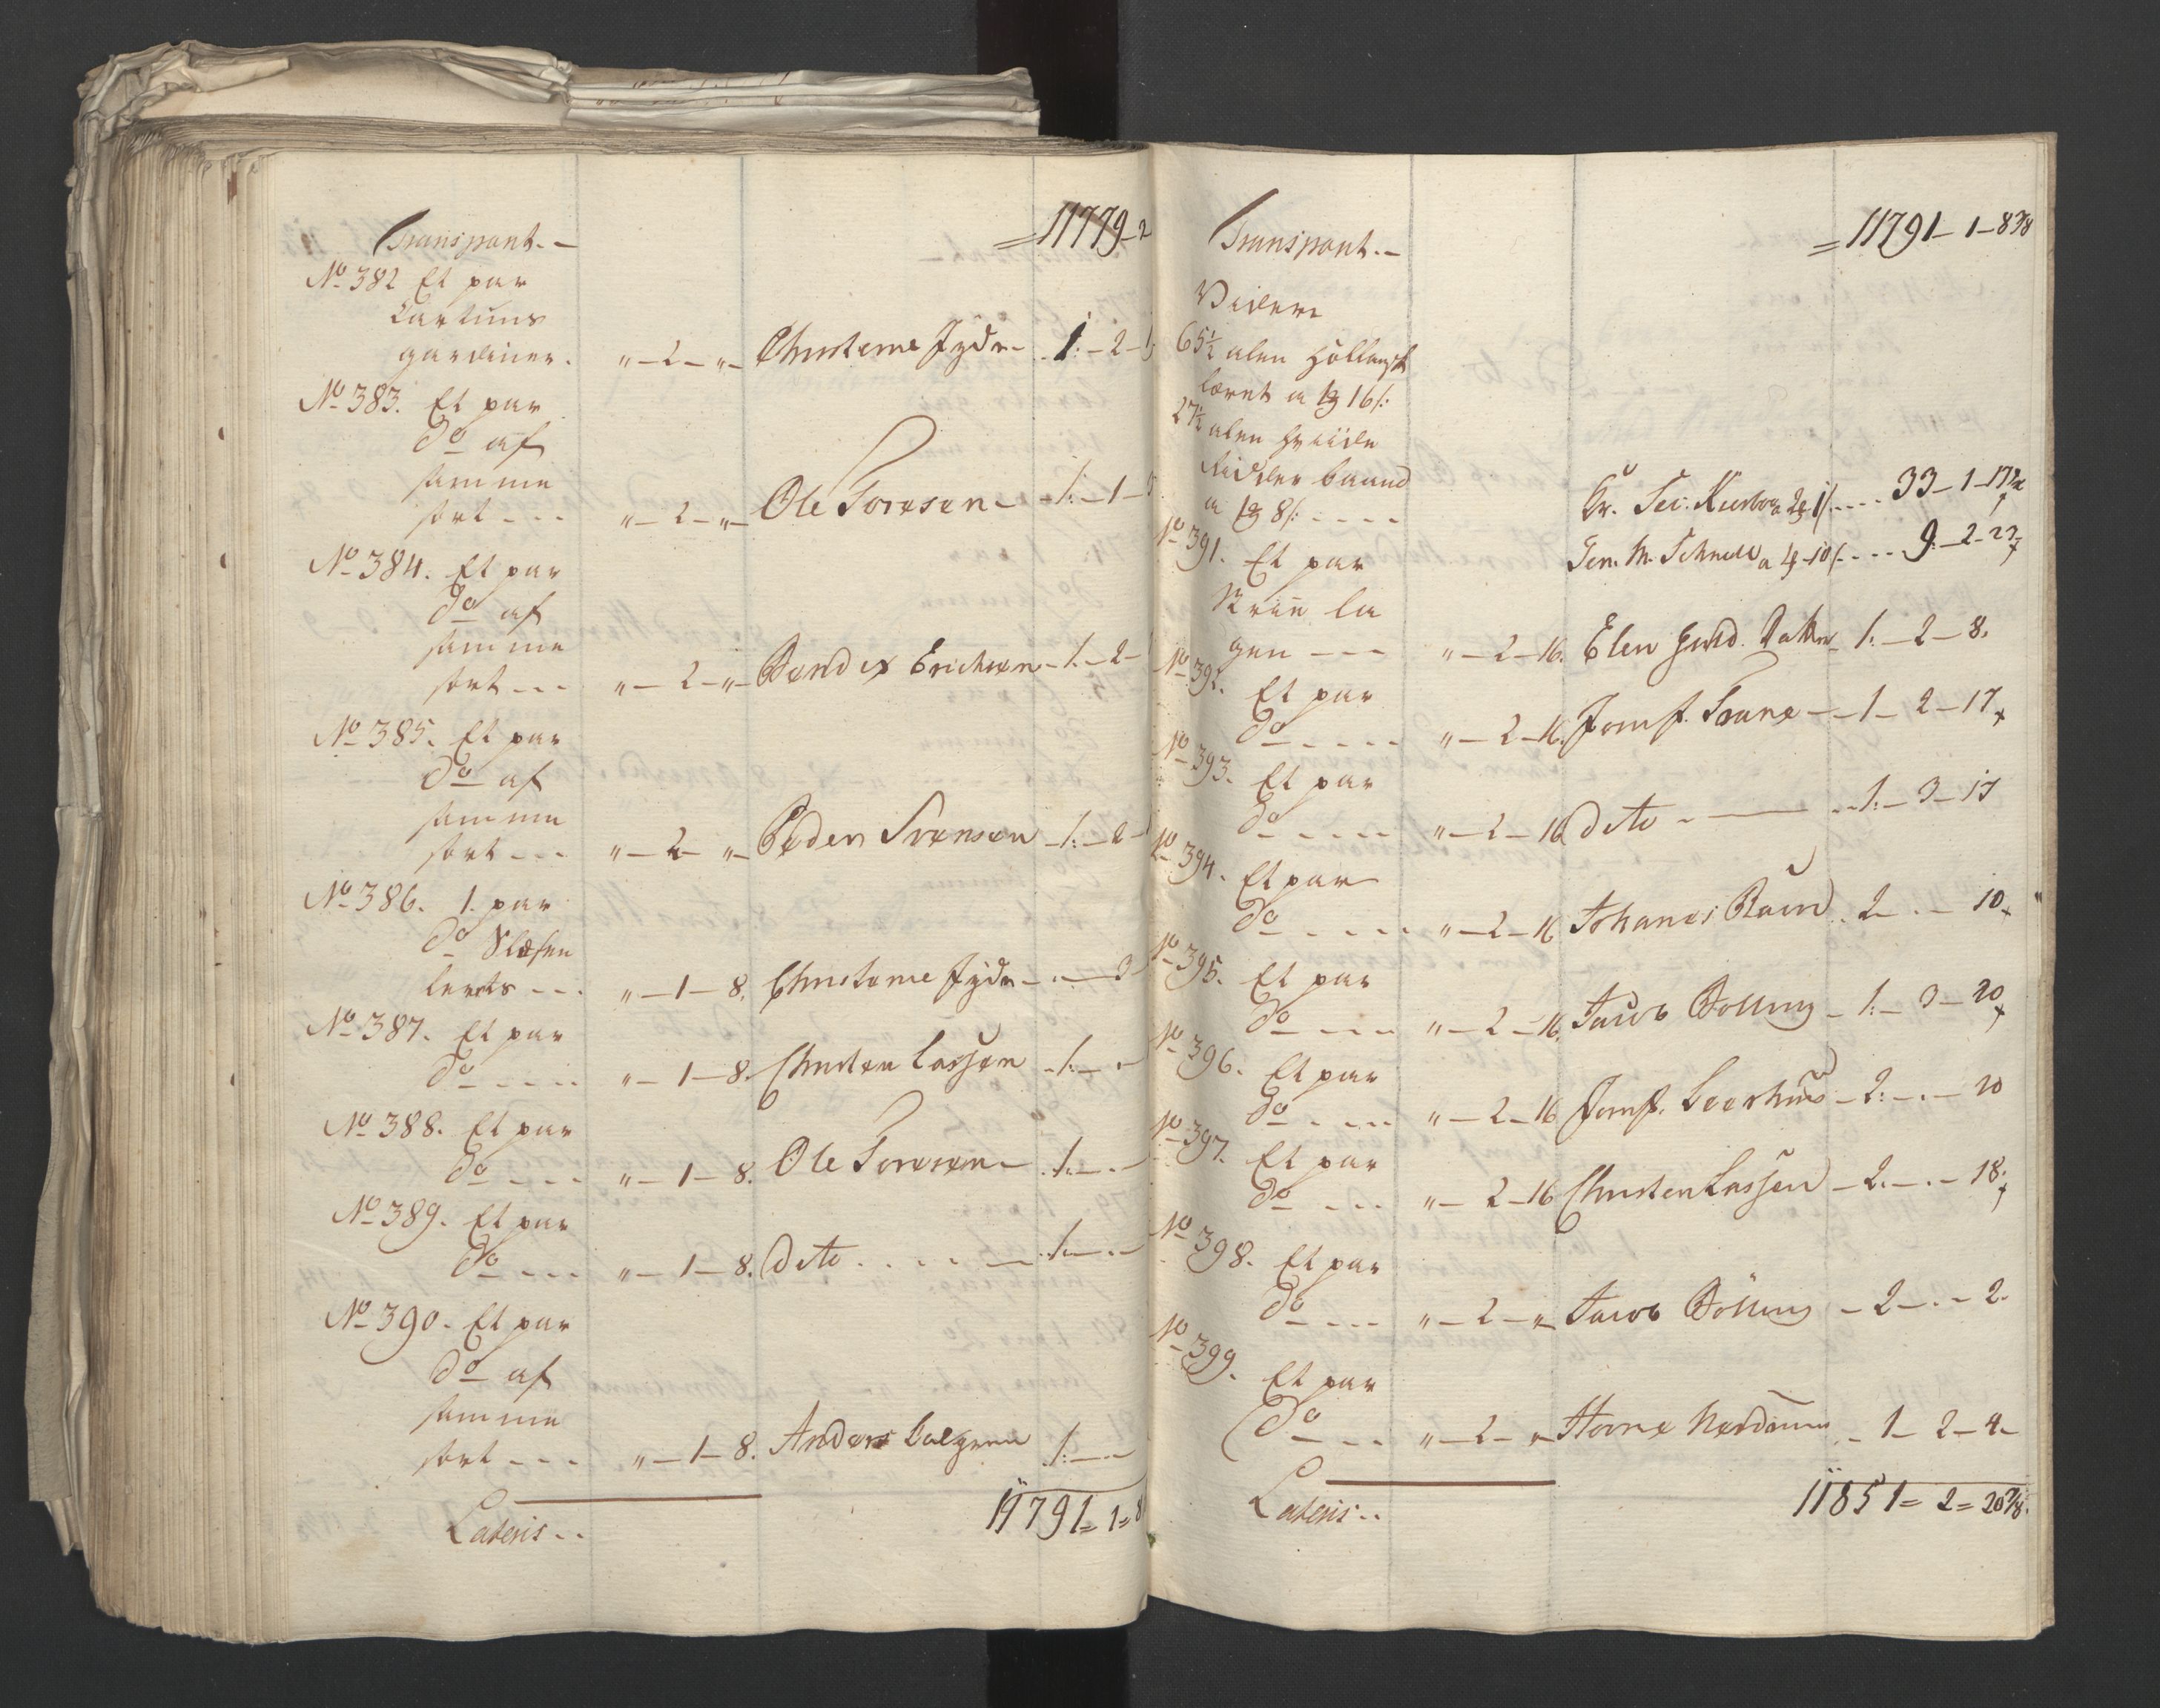 Transport.- =11779-2
No 382 Et par
Cartuns
gardiner. "-2-"- Christeme Jyde- 1.-2-
No 383. Et par
do af
samme
sort --- "-2-"- Ole Toresen- -1.-1-
No 384. Et par
do af
samme
sort --- "-2-"- Bendix Erichsen-1.-2-
No 385. Et par
do af
samme
sort --- "-2-"- Peder Svensen -1.-2-
No 386. 1. par
do
lerets --- "-1-8. Christeme Jyde- .-3
No 387. Et par
do ---- "-1-8. Christen Lassen -1.-.-
No 388. Et par
do ---- "-1-8. Ole Toresen- .1.-.-
No 389. Et par
do --- "-1-8. dito .... - .1.-.-
No 390. Et par
do af
samme
sort --- "-1-8. Anders 1.-.-
Lateris.. 11791=1=8
Transport.- =11791-1-8 3/8
Videre
65½ alen Hollansk
lærret a 16/:
27½ alen hviide
baand
a 8/: ----
33-1-17
a 10/- --- 9.-2-23
No 391. Et par
Striie la
gen --- "-2-16. Elen 1.-2-8.
No 392. Et par
do ----- "-2-16. Jomf. Trane --1-2-17
No 393. Et par
do ----- "-2-16 dito - --1.-3-17
No 394. Et par
do ----- "-2-16 Johanes 2-.-10
No 395. Et par
do ---- "-2-16. Jacob Bolling -1.-3-20
No 396. Et par
do ---- "-2-16 Jomf. -2.-.-20
No 397. Et par
do ---- "-2-16 Christen Lassen -2.-.-18.
No 398. Et par
do --- "-2-"- Jacob Bolling -2-.-2.
No 399. Et par
do --- "-2-"- Nerdrum -1-2-4-
Lateris.. 11851=2=20 7/8.